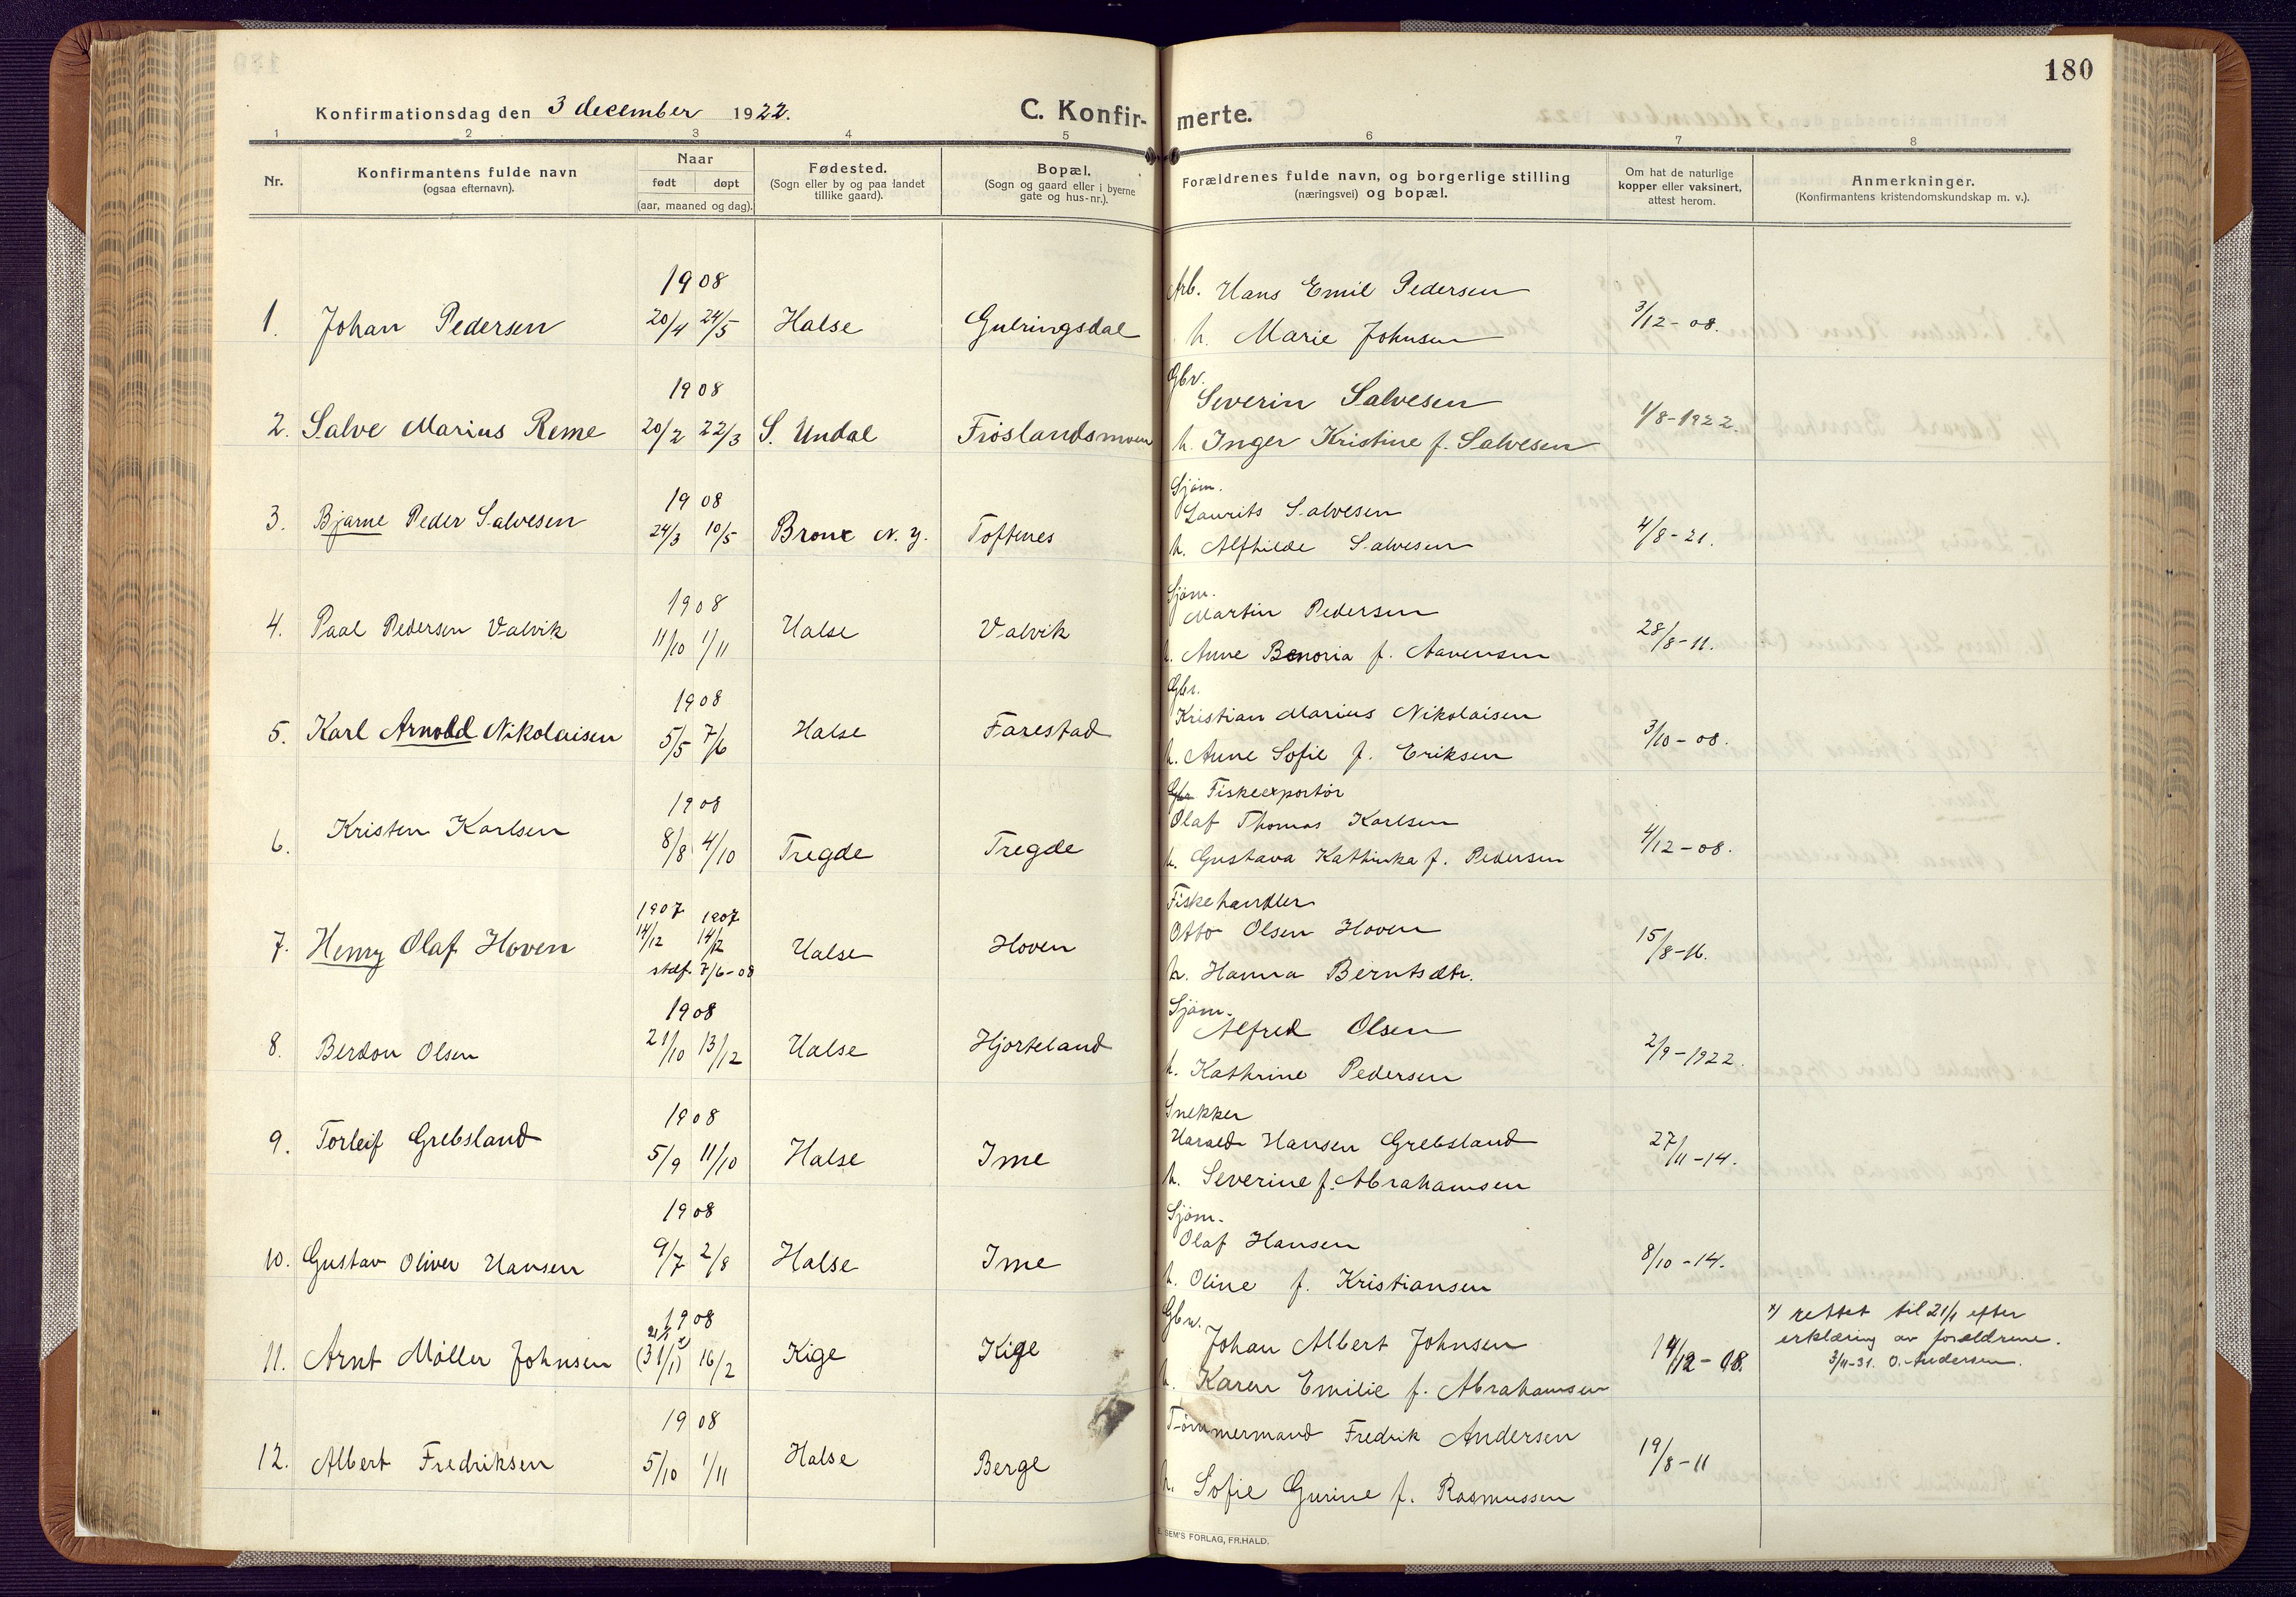 180
Konfirmationsdag den 3 december 1922.
C. Konfirmerte.
1 2 3 4 5 6 7 8
Nr.
Konfirmantens fulde navn
(ogsaa efternavn).
Naar
født døpt
(aar, maaned og dag).
Fødested.
(Sogn eller by og paa landet
tillike gaard).
Bopæl.
(Sogn og gaard eller i byerne
gate og hus-nr.).
Forældrenes fulde navn, og borgerlige stilling
(næringsvei) og bopæl.
Om hat de naturlige
kopper eller vaksinert,
attest herom.
Anmerkninger.
(Konfirmantens kristendomskundskap m. v.).
1908
Arb. Hans Emil Pedersen
1. Johan Pedersen 20/4 24/5 Halse Gulringsdal 3/12-08.
h. Marie Johnsen
1908
Gbr.
Severin Salvesen
2. Salve Marius Reme 20/2 22/3 S. Undal Frøslandsmoen 1/8-1922.
h. Inger Kristine f. Salvesen
1908
Sjøm.
Laurits Salvesen
3. Bjarne Peder Salvesen 24/3 10/5 Bronx N. Y. Toftenes 4/8-21.
h. Alfhilde Salvesen
1908
Sjøm.
Martin Pedersen
4. Paal Pedersen Valvik 11/10 1/11 Halse Valvik 28/8-11.
h. Anne Benoria f. Aavensen
1908
Gbr.
Kristian Marius Nikolaisen
5. Karl Arnold Nikolaisen 5/5 7/6 Halse Farestad 3/10-08.
h. Anne Sofie f. Eriksen
1908
Gbr Fiskeexportør
Olaf Thomas Karlsen
6. Kristen Karlsen 8/8 4/10 Tregde Tregde 4/12-08.
h. Gustava Kathinka f. Pedersen
1907 1907
Fiskehandler
Otto Olsen Hoven
7. Henry Olaf Hoven 14/12 14/12 Halse Hoven 15/8-16.
stadf. 7/6-08
h. Hanna Berntsdtr.
1908
Sjøm.
Alfred Olsen
8. Berdon Olsen 21/10 13/12 Halse Hjorteland 2/9-1922.
h. Kathrine Pedersen
1908
Snekker
Harald Hansen Grebsland
9. Torleif Grebsland 5/9 11/10 Halse Ime 27/11-14.
h. Severine f. Abrahamsen
1908
Sjøm.
Olaf Hansen
10. Gustav Oliver Hansen 9/7 2/8 Halse Ime 8/10-14.
h. Oline f. Kristiansen
1908
Gbr.
Johan Albert Johnsen
x) rettet til 21/1 efter
erklæring av forældrene.
3/11-31. O. Andersen.
21/1 x)
11. Arnt Møller Johnsen (31/1) 16/2 Kige Kige 14/12-08.
h. Karen Emilie f. Abrahamsen
1908
Tømmermand Fredrik Andersen
12. Albert Fredriksen 5/10 1/11 Halse Berge 19/8-11
h. Sofie Gurine f. Rasmussen
E. SEM'S FORLAG, FR.HALD.